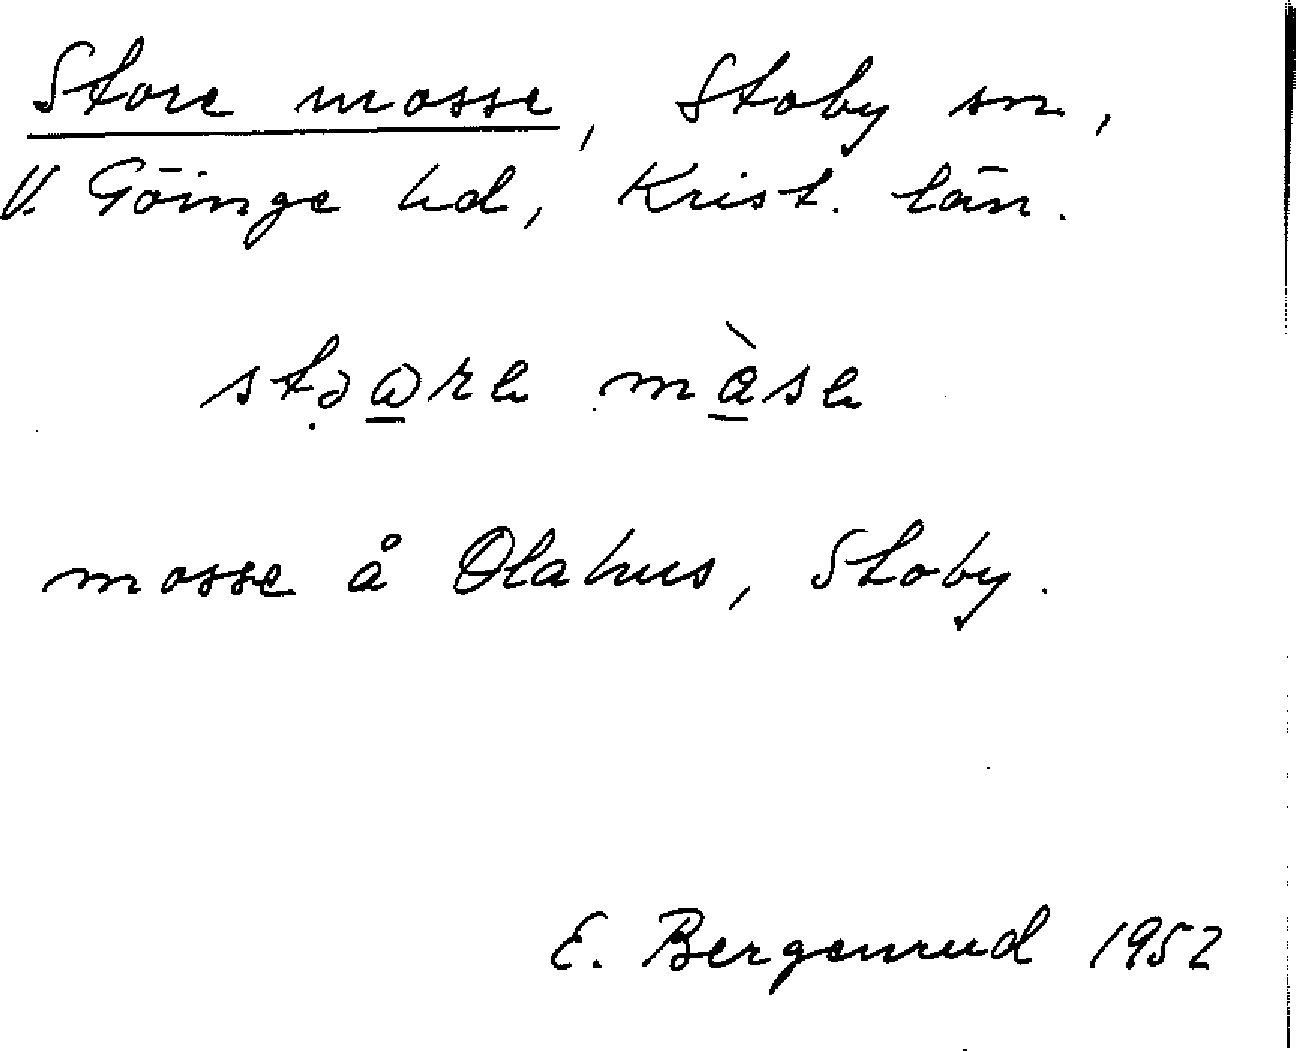 Store mosse, Stoby sn,
V. Göinge hd, Krist. län.
mosse å Olahus, Stoby.
E. Bergenrud 1952